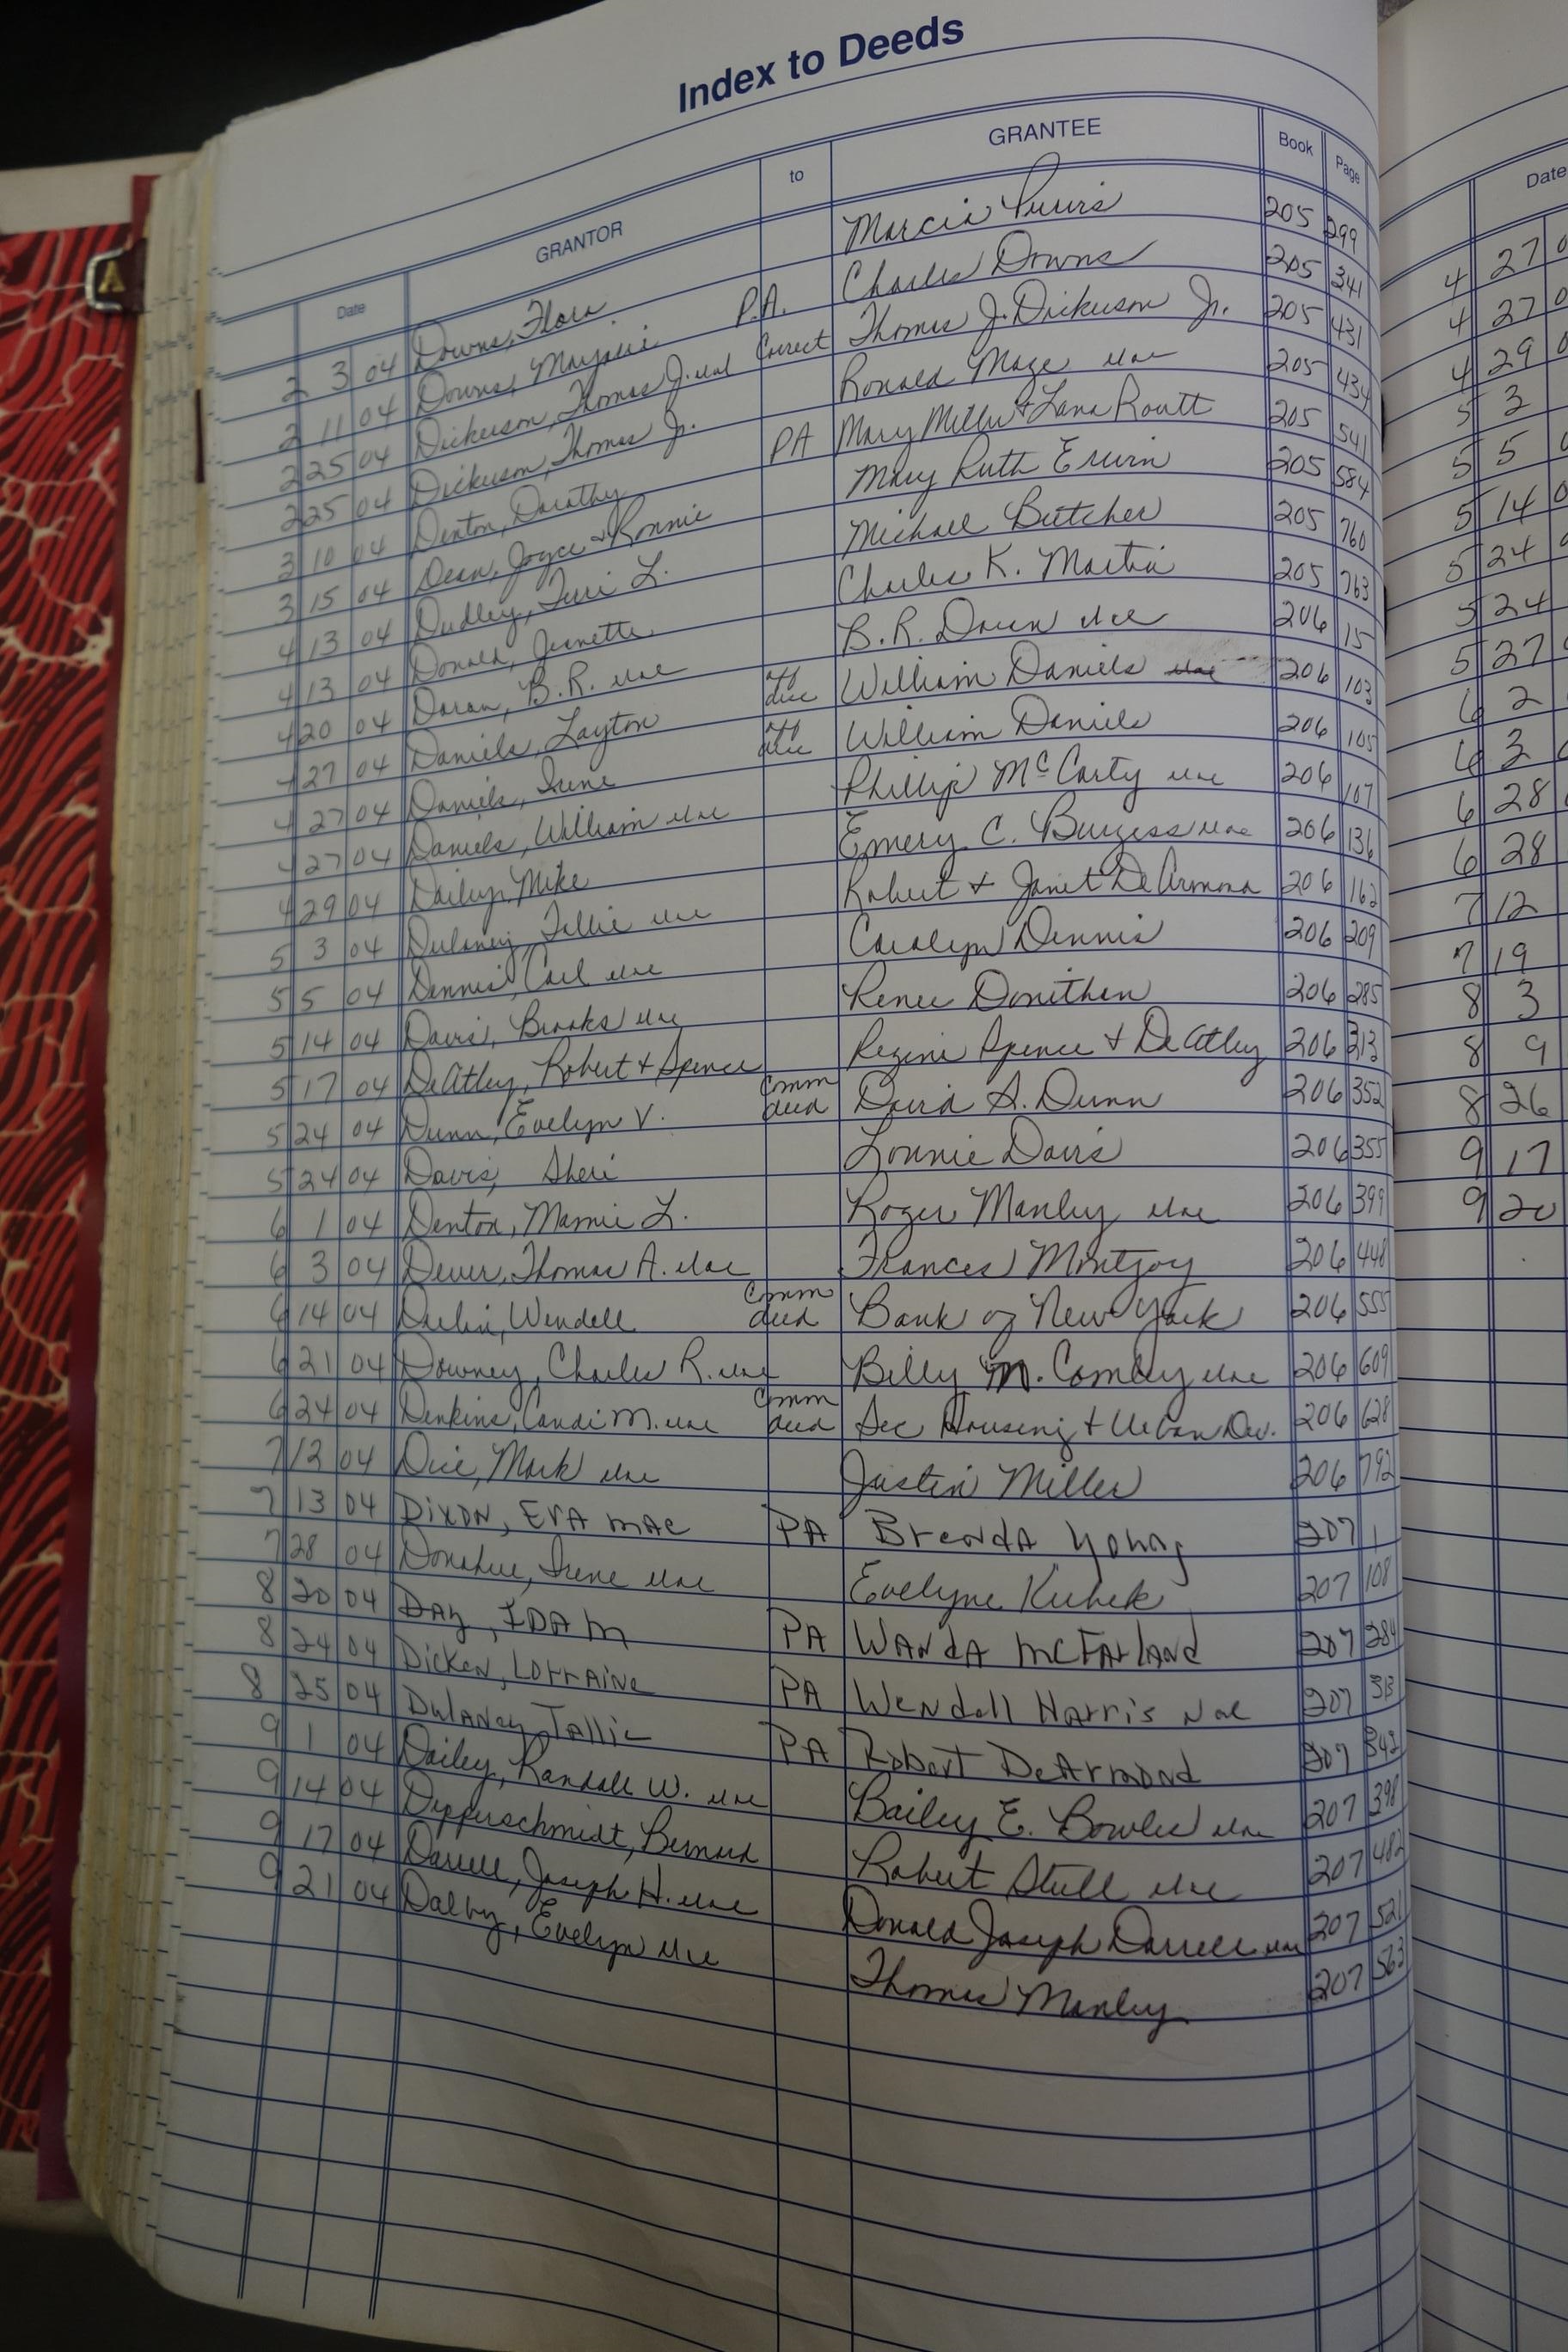 Index to Deeds
Date GRANTOR to GRANTEE Book Page
2 3 04 Downs, Flora Marcia Purvis 205 299
2 11 04 Downs, Marjorie P.A. Charles Downs 205 341
2 25 04 Dickerson, Thomas J. Correct Thomas J. Dickerson Jr. 205 431
2 25 04 Dickerson, Thomas Jr. Ronald Maze 205 434
3 10 04 Denton, Dorothy PA Mary Miller & Lana Routt 205 541
3 15 04 Dean, Joyce & Ronnie Mary Ruth Erwin 205 584
4 13 04 Dudley, Teri L. Michael Butcher 205 760
4 13 04 Donald, Jeanette Charles K. Martin 205 763
4 20 04 Doran, B.R. B.R. Doran 206 15
4 27 04 Daniels, Layton aff William Daniels 206 103
4 27 04 Daniels, Irene aff William Daniels 206 105
4 27 04 Daniels, William Phillip McCarty 206 107
4 29 04 Dailey, Mike Emery C. Burgess 206 136
5 3 04 Dulaney, Tallie Robert & Janet DeArmond 206 162
5 5 04 Dennis, Carl Carolyn Dennis 206 209
5 14 04 Davis, Brooks Renee Donithan 206 285
5 17 04 DeAtley, Robert & Spence Regina Spence & DeAtley 206 313
5 24 04 Dunn, Evelyn V. Comm deed David A. Dunn 206 352
5 24 04 Davis, Sheri Lonnie Davis 206 355
6 1 04 Denton, Mamie L. Roger Manley 206 399
6 3 04 Thomas A. Frances Montjoy 206 448
6 14 04 Wendell Comm deed Bank of New York 206 555
6 21 04 Downey, Charles R. Billy M. 206 609
6 24 04 Denkins, Candi M. Comm deed Sec Housing & Urban Dev. 206 628
7 12 04 Mark Justin Miller 206 792
7 13 04 Dixon, Eva Mae PA Brenda Young 207 1
7 28 04 Donahue, Irene Evelyne 207 108
8 20 04 Day, Ida M PA Wanda McFarland 207 284
8 24 04 Dicken, Lorraine PA Wendell Harris 207 313
8 25 04 Dulaney, Tallie PA Robert DeArmond 207 342
9 1 04 Dailey, Randall W. Bailey E. Bowles 207 398
9 14 04 Dipperschmidt, Bernard Robert Stull 207 482
9 17 04 Darrell, Joseph H. Donald Joseph Darrell 207 521
9 21 04 Dalby, Evelyn Thomas Manley 207 563
Date
4 27
4 27
4 29
5 3
5 5
5 14
5 24
5 24
5 27
6 2
6 3
6 28
6 28
7 12
7 19
8 3
8 9
8 26
9 17
9 20